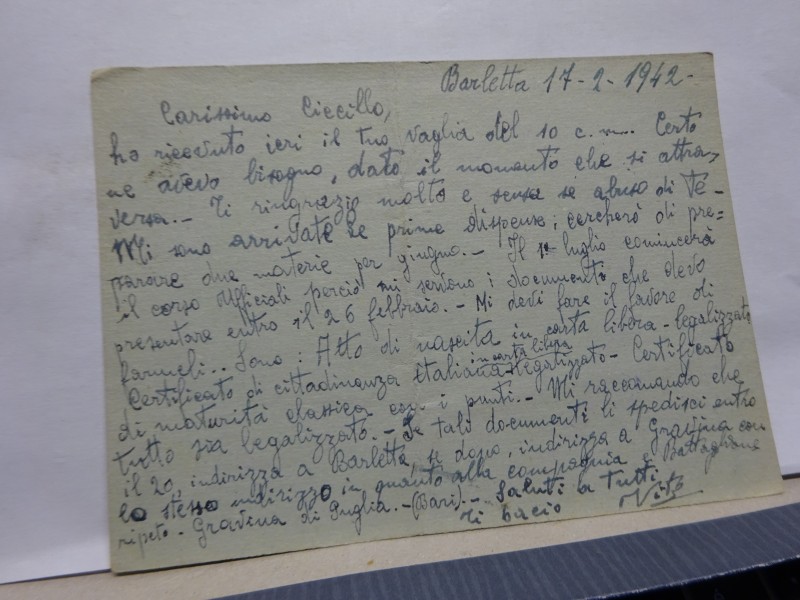 Barletta 17-2-1942-
Carissimo Ciccillo,
ho ricevuto ieri il tuo vaglia del 10 c. m... Certo
ne avevo bisogno, dato il momento che si attra-
versa.- Ti ringrazio molto e scusa se abuso di Te-
Mi sono arrivate le prime dispense; cercherò di pre=
parare due materie per giugno.- Il 1º luglio comincerà
il corso Ufficiali perciò mi servono i documenti che devo
presentare entro il 26 febbraio.- Mi devi fare il favore di
farmeli.. Sono: Atto di nascita in carta libera-legalizzato
in carta libera
Certificato di cittadinanza Italiana-legalizzato- Certificato
di maturità classica con i punti.- Mi raccomando che
tutto sia legalizzato.- Se tali documenti li spedisci entro
il 20, indirizza a Barletta, se dopo, indirizza a Gravina con
lo stesso indirizzo in quanto alla compagnia e Battaglione
ripeto- Gravina di Puglia.-(Bari).- Saluti a tutti
Ti bacio Vito